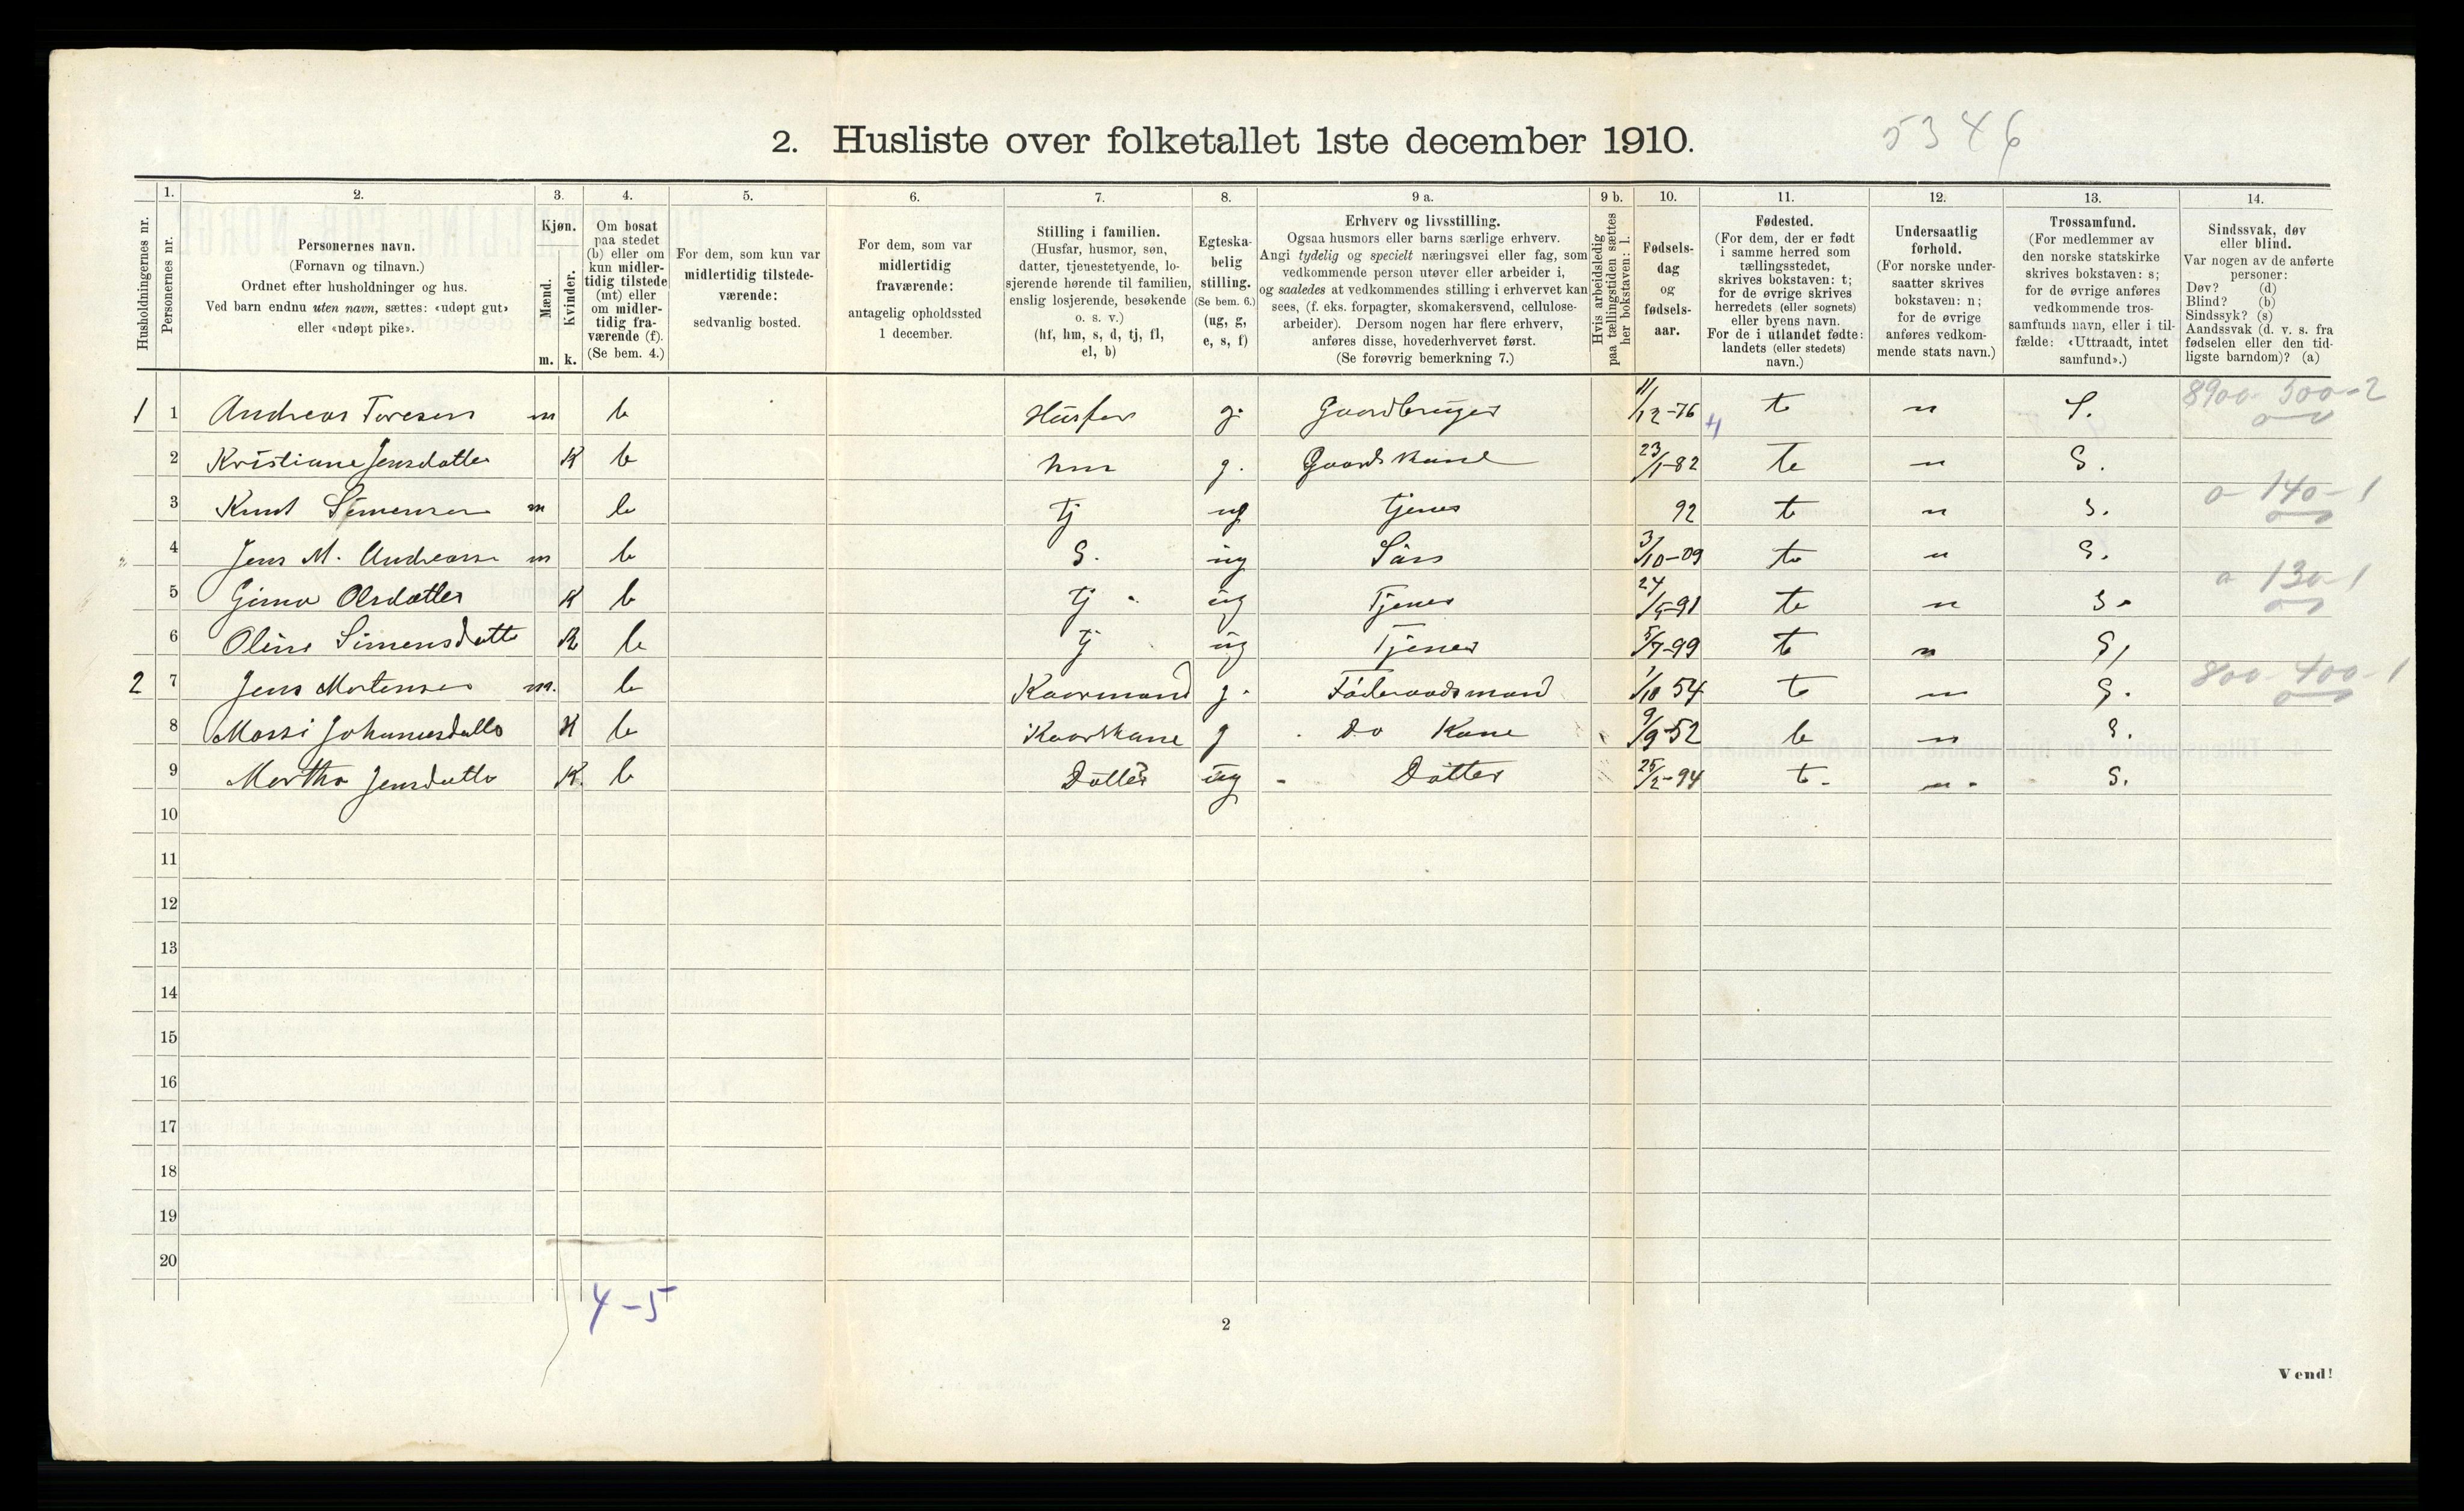 2. Husliste over folketallet 1ste december 1910.
5346
Husholdningernes nr.
1.
Personernes nr.
2.
Personernes navn.
(Fornavn og tilnavn.)
Ordnet efter husholdninger og hus.
Ved barn endnu uten navn, sættes: «udøpt gut»
eller «udøpt pike».
3.
Kjøn.
Mænd.
Kvinder.
m. k.
4.
Om bosat
paa stedet
(b) eller om
kun midler-
tidig tilstede
(mt) eller
om midler-
tidig fra-
værende (f).
(Se bem. 4.)
5.
For dem, som kun var
midlertidig tilstede-
værende:
sedvanlig bosted.
6.
For dem, som var
midlertidig
fraværende:
antagelig opholdssted
1 december.
7.
Stilling i familien.
(Husfar, husmor, søn,
datter, tjenestetyende, lo-
sjerende hørende til familien,
enslig losjerende, besøkende
o. s. v.)
(hf, hm, s, d, tj, fl,
el, b)
8.
Egteska-
belig
stilling.
(Se bem. 6.)
(ug, g,
e, s, f)
9 a.
Erhverv og livsstilling.
Ogsaa husmors eller barns særlige erhverv.
Angi tydelig og specielt næringsvei eller fag, som
vedkommende person utøver eller arbeider i,
og saaledes at vedkommendes stilling i erhvervet kan
sees, (f. eks. forpagter, skomakersvend, cellulose-
arbeider). Dersom nogen har flere erhverv,
anføres disse, hovederhvervet først.
(Se forøvrig bemerkning 7.)
9 b.
Hvis arbeidsledig
paa tællingstiden sættes
her bokstaven: l.
10.
Fødsels-
dag
og
fødsels-
aar.
11.
Fødested.
(For dem, der er født
i samme herred som
tællingsstedet,
skrives bokstaven: t;
for de øvrige skrives
herredets (eller sognets)
eller byens navn.
For de i utlandet fødte:
landets (eller stedets)
navn.)
12.
Undersaatlig
forhold.
(For norske under-
saatter skrives
bokstaven: n;
for de øvrige
anføres vedkom-
mende stats navn.)
13.
Trossamfund.
(For medlemmer av
den norske statskirke
skrives bokstaven: s;
for de øvrige anføres
vedkommende tros-
samfunds navn, eller i til-
fælde: «Uttraadt, intet
samfund».)
14.
Sindssvak, døv
eller blind.
Var nogen av de anførte
personer:
Døv? (d)
Blind? (b)
Sindssyk? (s)
Aandssvak (d. v. s. fra
fødselen eller den tid-
ligste barndom)? (a)
1 1 Andreas Toresen m b Husfar g. Gaardbruger 11/12-76 t n S. 8900-500-2
2 Kristiane Jensdatter K b hm g. Gaardskane 23/1-82 t n S.
3 Knut Simensen m b Tj ug tjener 92 t n S. 0-140-1
4 Jens M. Andreass m b S. ug Søn 3/10-09 t n S.
5 Gima Olsdatter K b Tj ug Tjener 24/5-91 t n S. 0 130-1
6 Oline Simensdatt K b Tj ug Tjener 5/7-99 t n S,
2 7 Jens Mortensen m. b Kaarmand g. Føderaadsmand 1/10 54 t n S. 800-400-1
8 Massi Johannesdatto K b Kaarkane g Do Kane 9/9-52 b n S.
9 Martha Jensdatto K. b Datter ug - Datter 25/2-94 t- n. S.
10
11
12
13
14
15
16
17
18
19
20
4-5
2
Vend!